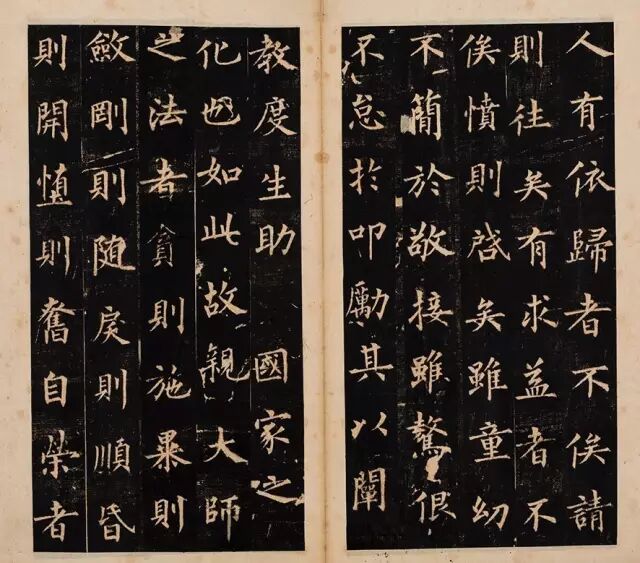 人有依歸者不俟請
則往矣有求益者不
俟憤則啓矣雖童幼
不簡於敬接雖驁佷
不怠於叩勵其以闡
教度生助 國家之
化也如此故親大師
之法者貪則施暴則
斂剛則随戾則順昏
則開惰則奮自榮者